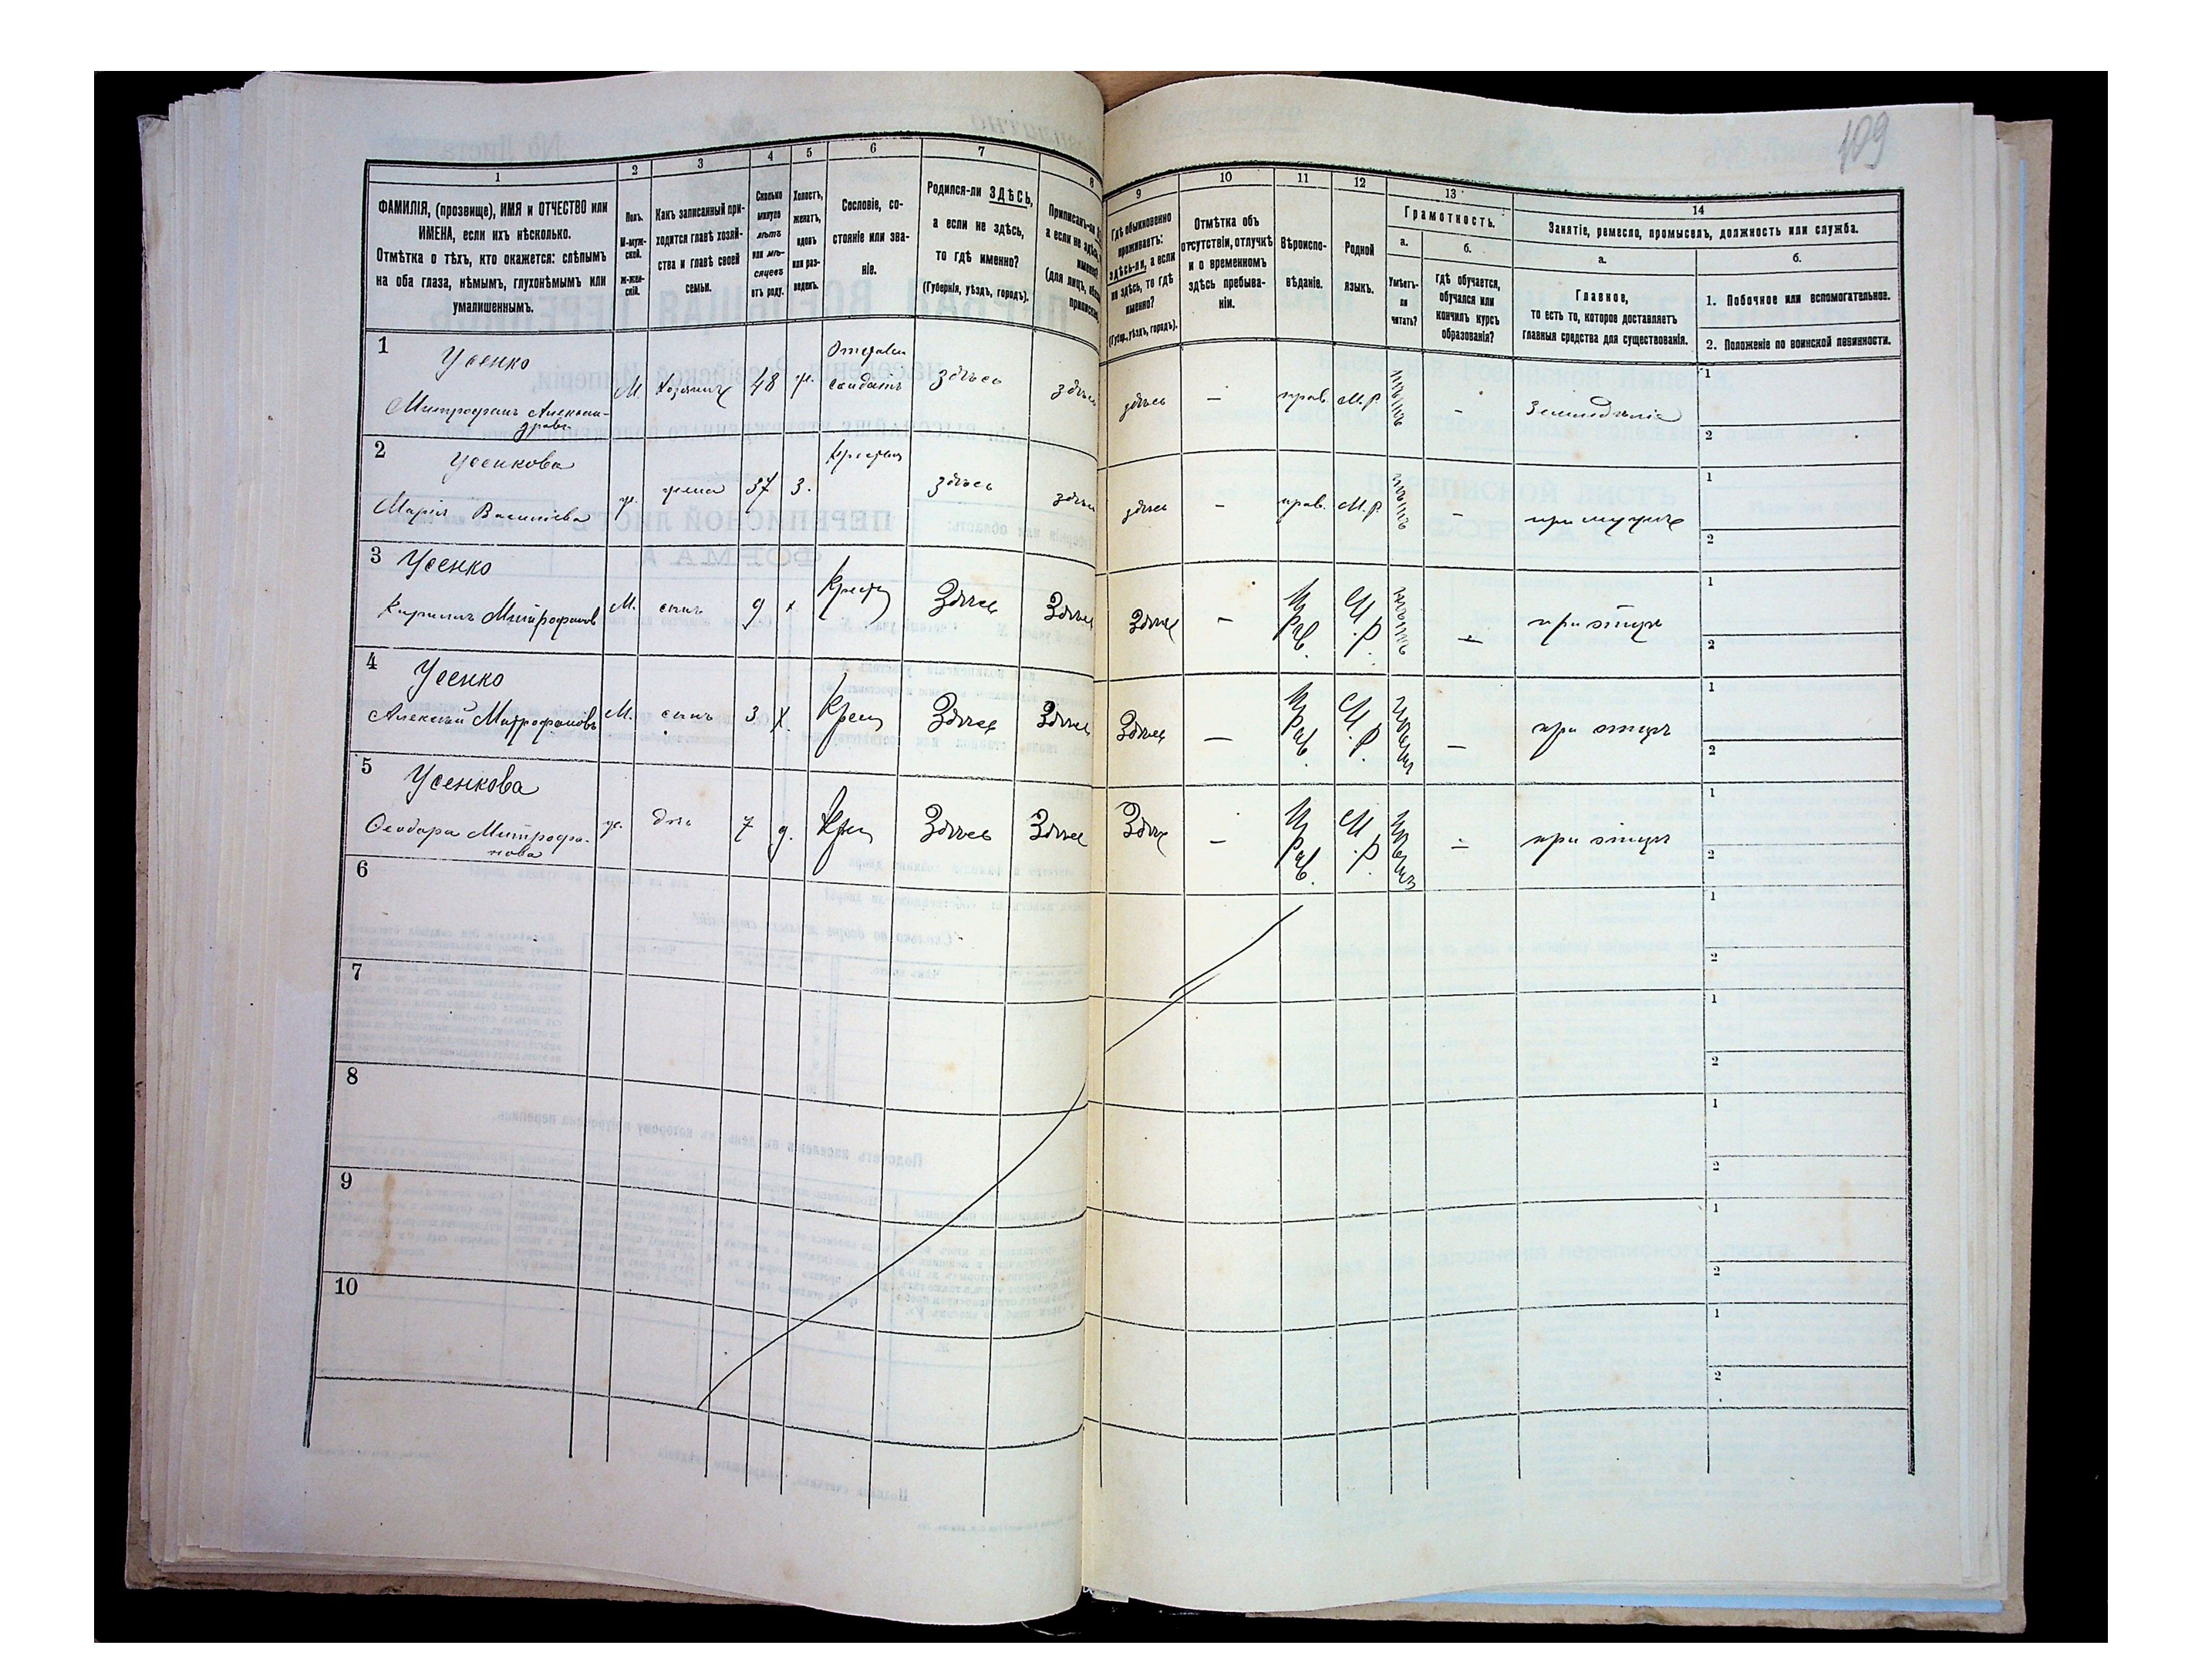 109
1 2 3 4 5 6 7 8
ФАМИЛІЯ, (прозвище), ИМЯ и ОТЧЕСТВО или
ИМЕНА, если ихъ нѣсколько.
Отмѣтка о тѣхъ, кто окажется: слѣпымъ
на оба глаза, нѣмымъ, глухонѣмымъ или
умалишеннымъ.
Полъ.
М-муж-
ской.
ж-жен-
скій.
Какъ записанный при-
ходится главѣ хозяй-
ства и главѣ своей
семьи.
Сколько
минуло
лѣтъ
или мѣ-
сяцевъ
отъ роду.
Холостъ,
женатъ,
вдовъ
или раз-
веденъ.
Сословіе, со-
стояніе или зва-
ніе.
Родился-ли ЗДѢСЬ,
а если не здѣсь,
то гдѣ именно?
(Губернія, уѣздъ, городъ).
а если не
(для лицъ,
9 10 11 12 13 14
Гдѣ обыкновенно
проживаетъ:
здѣсь-ли, а если
не здѣсь, то гдѣ
именно?
(Губер., уѣздъ, городъ).
Отмѣтка объ
отсутствіи, отлучкѣ
и о временномъ
здѣсь пребыва-
ніи.
Вѣроиспо-
вѣданіе.
Родной
языкъ.
Грамотность.
а.
Умѣетъ-
ли
читать?
б.
Гдѣ обучается,
обучался или
кончилъ курсъ
образованія?
Занятіе, ремесло, промыселъ, должность или служба.
а.
Главное,
то есть то, которое доставляетъ
главныя средства для существованія.
б.
1. Побочное или вспомогательное.
2. Положеніе по воинской повинности.
1 Усенко
Митрофанъ Алексан-
дровъ
М. хозяинъ 48 ж.
здѣсь здѣсь здѣсь — прав. М.р. — Земледѣліе
1
2
2 Усенкова
Марія Василіева ж. жена 37 з. здѣсь здѣсь здѣсь — прав. М.р. — при мужѣ
1
2
3 Усенко
Кириллъ Митрофановъ М. сынъ 9 х Крест Здѣсь Здѣсь Здѣсь — Прав. М.р. — при отцѣ
1
2
4 Усенко
Алексѣй Митрофановъ М. сынъ 3 х. Крест Здѣсь Здѣсь Здѣсь — Прав. М.р. — при отцѣ
1
2
5 Усенкова
Ѳеодора Митрофа-
нова
ж. дочь 7 Крест Здѣсь Здѣсь Здѣсь — Прав. М.р. — при отцѣ
1
2
6
1
2
7
1
2
8
1
2
9
1
2
10
1
2